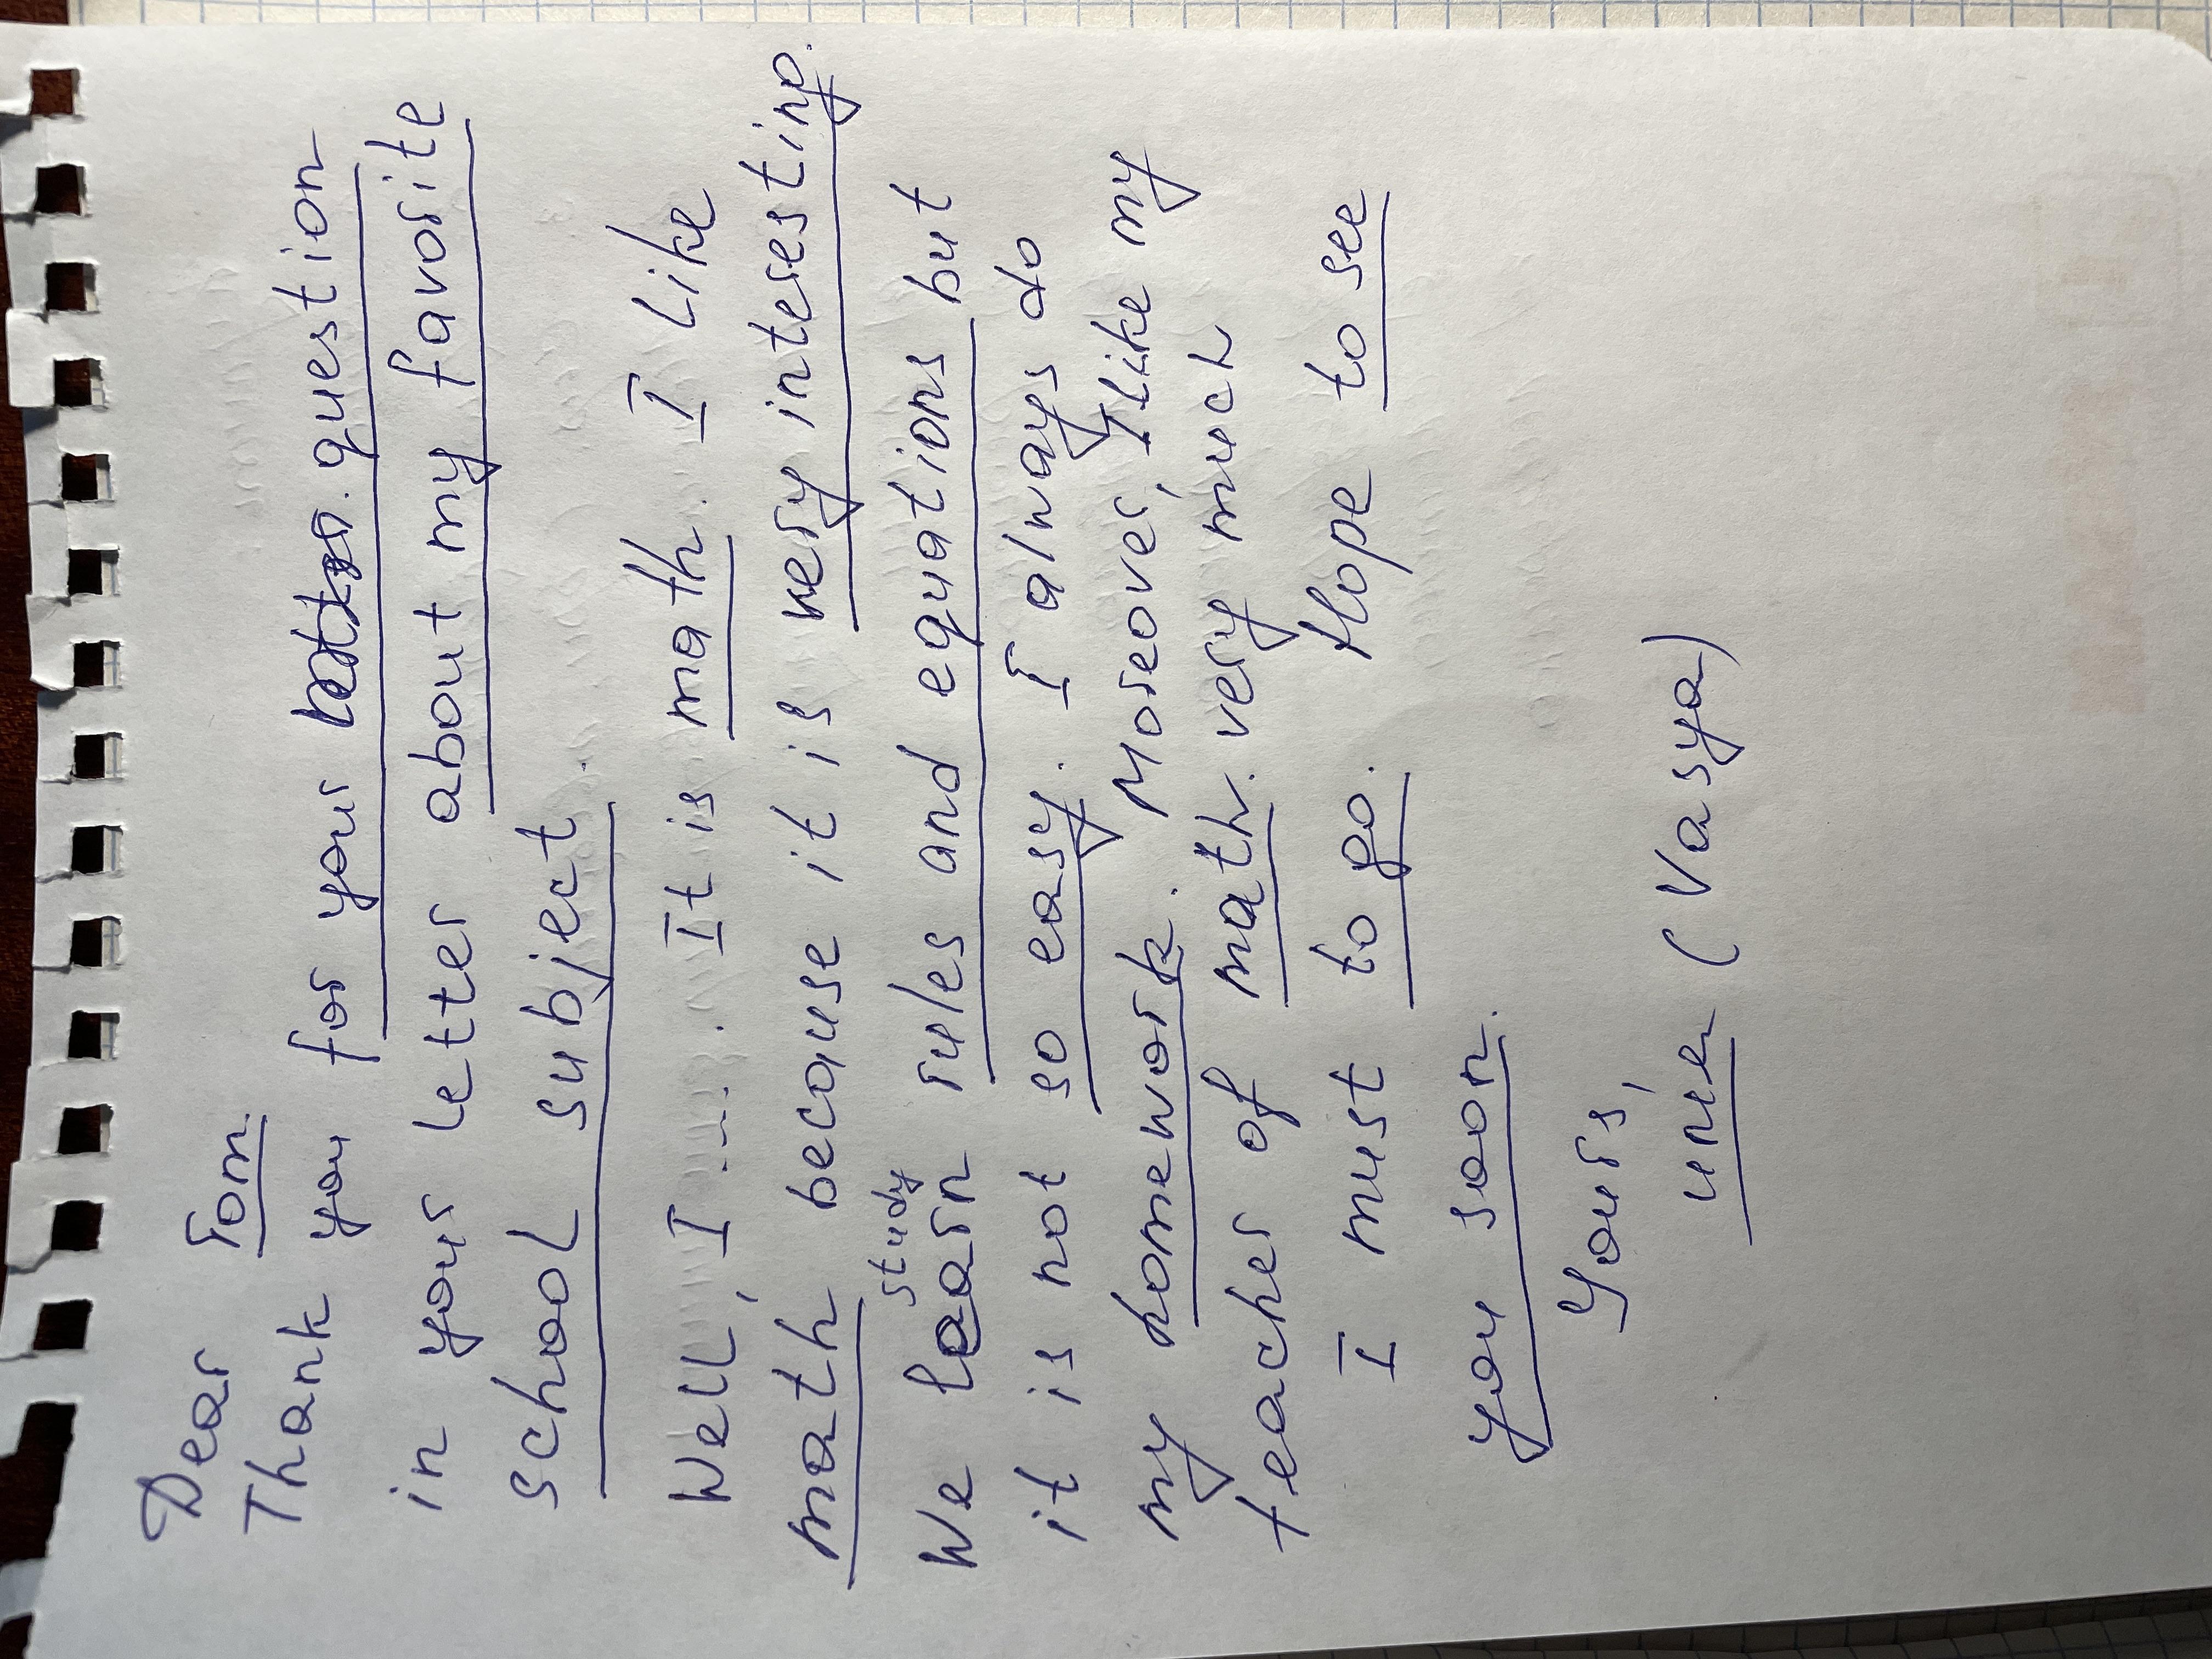 Dear Tom.
Thank you for your question
in your letter about my favorite
school subject.
Well, I .... . It is math. I like
math because it is very interesting.
study
We learn rules and equations but
it is not so easy. I always do
my homework. Moreover, I like my
teacher of math. very much
I must to go. Hope to see
you soon.
Yours,
имя (Vasya)